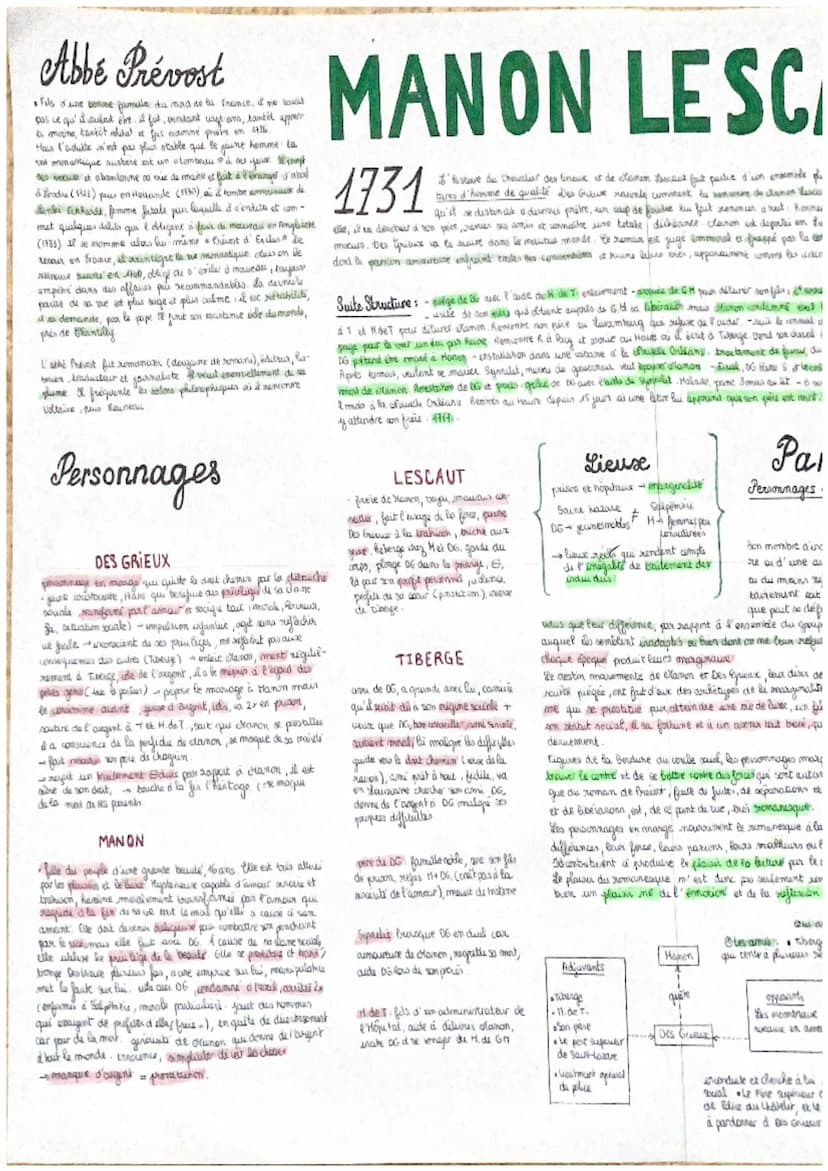 Abbé Prévost
• Fils d'une bonne famille du nord de la France, il ne savait
pas ce qu'il voulait être. Il fut, pendant vingt ans, tantôt
moine, tantôt soldat et fut nommé prêtre en
Mais l'adulte n'est pas plus stable que le jeune homme: la
vie monastique austère est un à ses yeux. Il rompt
ses voeux et abandonne sa vie de moine et fuit à l'étranger d'abord
à Londres puis en Hollande (1730), où il tombe amoureux de
Lenki Eckhardt, femme fatale pour laquelle il s'endette et com-
met quelques délits qui l'obligent à fuir de nouveau en Angleterre
(1733). Il se nomme alors lui-même "Prévost d'Exiles". De
retour en France, il réintègre la vie monastique
obligé de s'exiler à nouveau, toujours
empêtré dans des affaires peu recommandables. La dernière
partie de sa vie est plus sage et plus calme: il est réhabilité,
à sa demande, par le pape. Il finit son existence loin du monde,
près de Chantilly.
L'abbé Prévost fut romancier (douzaine de romans), éditeur, his-
torien, traducteur et journaliste. Il vécut essentiellement de sa
plume. Il fréquente les salons philosophiques où il rencontre
Voltaire, puis Rousseau.
MANON LESCA
1731
L'Histoire du Chevalier des Grieux et de Manon Lescaut fait partie d'un ensemble
d'Homme de qualité. Des Grieux raconte comment la rencontre de Manon
qu'il se destinait à devenir prêtre, un coup de foudre lui fait renoncer à tout:
elle, il va désobéir à son père, renier ses amis et connaître une totale déchéance. Manon est déportée en
Des Grieux va la suivre dans le nouveau monde. Le roman est jugé immoral et frappé par la
dont la passion amoureuse enfreint toutes les conventions et ruine leurs vies, apparaissent comme les
Suite Structure: - piégé de DG avec l'aide de H. de T. enlèvement
qui obtient auprès de G.M sa libération mais Manon condamnée exil
d T et HdeT pour délivrer Manon. Rencontre son père au Luxembourg qui refuse de l'aider.
paye pour la voir une heure. Rencontre
DG prétend être marié à Manon - installation dans une cabane à la Nouvelle Orléans.
Après voulant se marier Synnelet, neveu du gouverneur veut épouser Manon - Duel, DG
mort de Manon. Arrestation de DG et procès - grâce de DG avec l'aide de Synnelet. Malade, pendant 3 mois au lit
2 mois à la Nouvelle Orléans. Rentrés au Havre depuis 15 jours où une lettre lui apprend que son père est mort.
y attendre son frère. 1717.
Personnages
DES GRIEUX
personnage en marge qui quitte le droit chemin par la débauche
• jeune aristocrate, 17 ans qui bénéficie des privilèges de sa classe
sociale, transformé par l'amour et sacrifie tout (morale, honneur,
foi, situation sociale) → impulsion enfantine, agit sans réfléchir
→ inconscient de ses privilèges, ne réfléchit pas aux
conséquences des autres (Tiberge) → enlève Manon, ment réguliè-
rement à Tiberge, vole de l'argent, il a le mépris à l'égard des
petites gens → propose le mariage à Manon mais
en prison,
soutire de l'argent à T et H. de T., sait que Manon se prostitue
il a conscience de la perfidie de Manon, se moque de sa naïveté
→ fait mourir son père de chagrin.
→ reçoit un traitement par rapport à Manon, il est
→ touche à la fin l'héritage
de la mort de ses parents.
MANON
• fille du peuple d'une grande beauté, 16 ans. Elle est très attirée
par les plaisirs et le luxe. Mystérieuse capable d'amour sincère et
trahison, héroïne, moralement transformée par l'amour qui
rachète à la fin de sa vie tout le mal qu'elle a causé à son
amant. Elle doit devenir religieuse pour combattre son penchant
pour le vice mais elle fuit avec DG. A cause de sa classe sociale
elle utilise le privilège de la beauté. Elle se prostitue et trahit,
trompe Des Grieux plusieurs fois, a une emprise sur lui, manipulatrice
met la faute sur lui. condamnée à l'exil,
(enfermée à Salpêtrière, morale particulière: faut des hommes
qui essayent de profiter d'elle en quête de divertissement
car peur de la mort. générosité de Manon qui donne de l'argent
à tout le monde.
→ manque d'argent = prostitution.
LESCAUT
• frère de Manon, voyou, mauvais con-
seiller, fait l'usage de la force, pousse
Des Grieux à la trahison, triche aux
jeux. Héberge chez M et DG, garde du
corps, plonge DG dans le
là pour son profit personnel,
profite de sa soeur (prostitution), inverse
de Tiberge.
TIBERGE
ami de DG, a grandi avec lui, conscient
qu'il soit dû à son origine sociale +
veut que DG, bon conseiller, ami sincère,
soutient moral, là malgré les difficultés
guide vers le droit chemin (voix de la
raison), ami prêt à tout, fidèle, va
en Louisiane chercher son ami DG,
donne de l'argent à DG malgré ses
propres difficultés
père de DG: famille noble, sort son fils
de prison, refus M + DG (croit pas à la
sincérité de l'amour), meurt de tristesse
Synnelet: Provoque DG en duel car
amoureux de Manon, regrette sa mort,
aide DG lors de son procès.
H. de T.: fils d'un administrateur de
l'Hôpital, aide à délivrer Manon,
incite DG à se venger du M. de GM
Lieux
prisons et hôpitaux → marginalité
Saint Lazare ≠ Salpêtrière
DG → jeunes nobles M → femmes peu
considérées
→ lieux réels qui rendent compte
de l'inégalité de traitement des
individus
Par
Personnages
bon nombre d'
re ou d'une
ou du moins
que peut se déf
vidus que leur différence, par rapport à l'ensemble du group
auquel ils semblent inadaptés ou bien dont on les leur refus
chaque époque produit leurs marginaux
Le destin mouvementé de Manon et Des Grieux,
ont fait d'eux des archétypes de la marginalité
me qui se prostitue pour atteindre une vie de luxe, un fils
son statut social, à sa fortune et à un avenir tout tracé,
dénuement.
Figures de la bordure du cercle social, les personnages marg
trouver le centre et de se battre contre des forces qui sont
que du roman de Prévost, faite de fuites, de séparations et
et de libérations, est, de ce point de vue, très romanesque.
Les personnages en marge nourrissent le romanesque à la
différences, leur force, leurs passions, leurs malheurs ou
Ils contribuent à produire le plaisir de la lecture par le
Le plaisir du romanesque n'est donc pas seulement
bien un plaisir né de l'émotion et de la réflexion
Qui
① Les amis: • Tiberg
qui tente à plusieurs
Adjuvants
• Tiberge
• H. de T.
• Son père
• Le père supérieur
de Saint-Lazare
• Lieutenant général
de police
Manon
quête
Des Grieux
opposants
Les nombreux
rivaux en amo
conduite et cherche à lui
social • Le Père supérieur
de Police du Châtelet, et le
à pardonner à Des Grieux